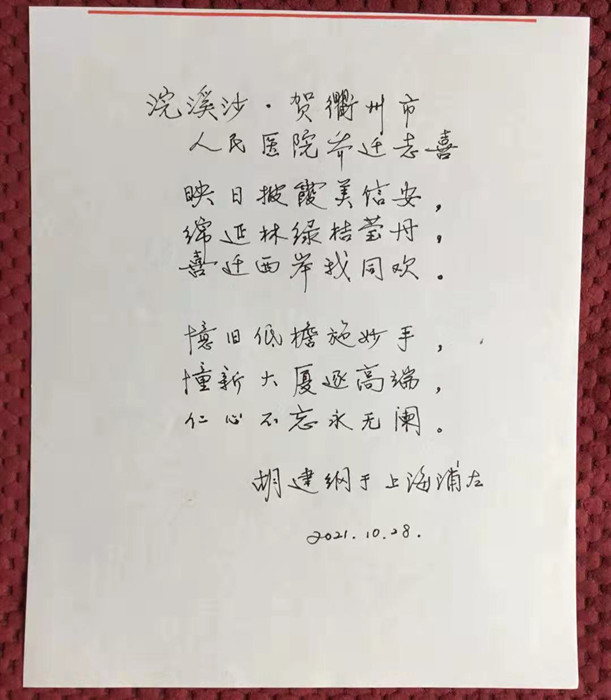 浣溪沙·贺衢州市
人民医院乔迁志喜
映日披霞美信安，
绵延林绿桔莹丹，
喜迁西岸找同欢。
憶旧低檐施妙手，
憧新大厦逐高端，
仁心不忘永无阑。
胡建纲于上海浦左
2021.10.28.